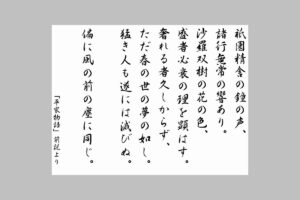 祇園精舎の鐘の声、
諸行無常の響あり。
沙羅双樹の花の色、
盛者必衰の理を顕はす。
奢れる者久しからず、
ただ春の世の夢の如し。
猛き人も遂には滅びぬ。
偏に風の前の塵に同じ。
『平家物語』前記より